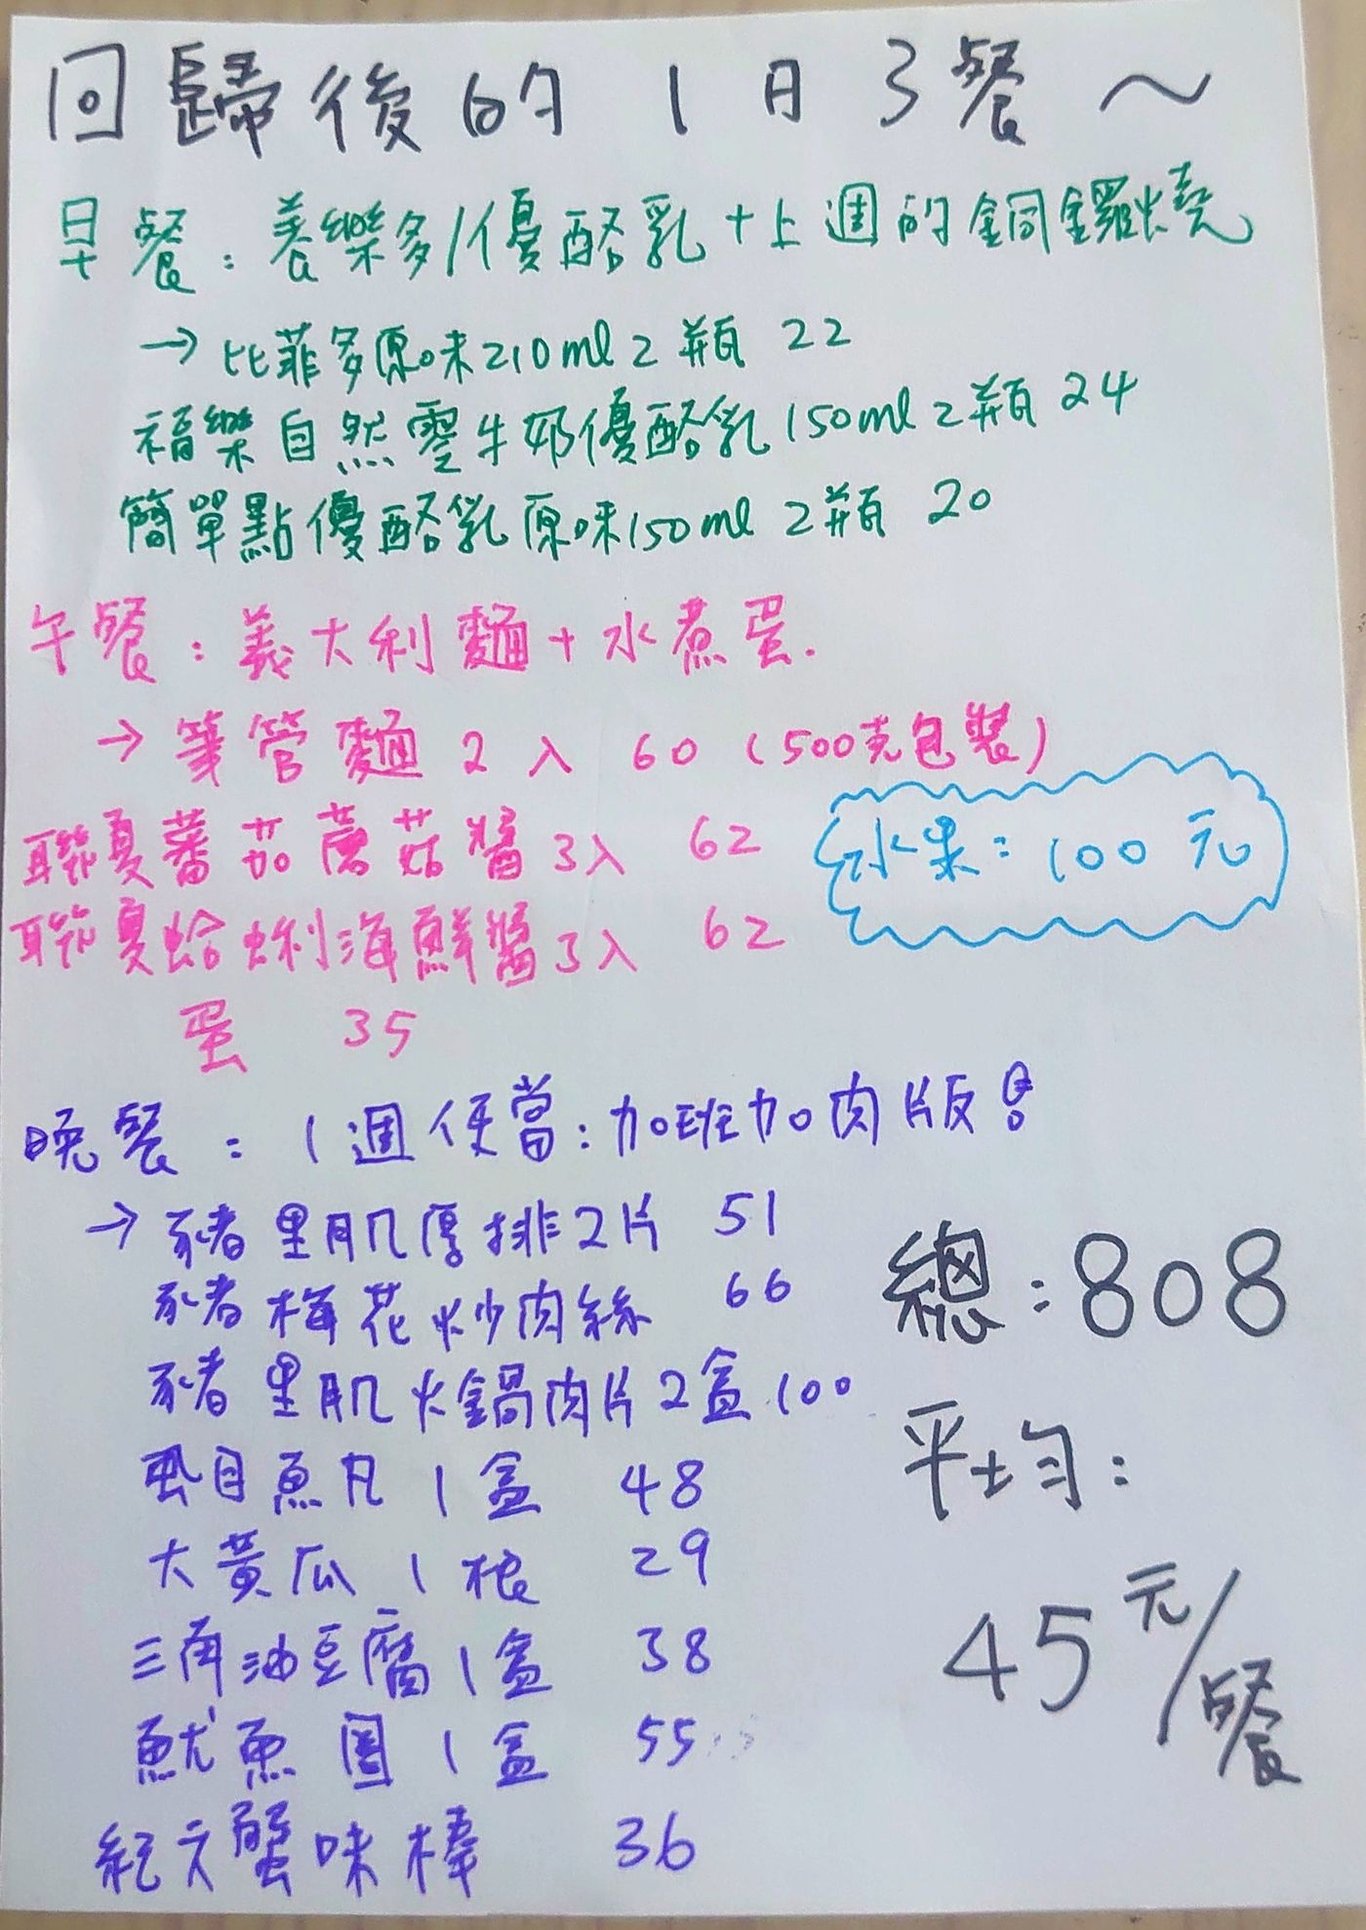 回歸後的1日3餐～
早餐：養樂多/優酪乳+上週的銅鑼燒
→比菲多原味210ml2瓶 22
福樂自然零牛奶優酪乳150ml2瓶 24
簡單點優酪乳原味150ml 2瓶 20
午餐：義大利麵+水煮蛋.
→筆管麵 2入 60（500克包裝）
聯夏蕃茄蘑菇醬3入 62
水果：100元
聯夏蛤蜊海鮮醬3入 62
蛋 35
晚餐：1週便當：加班加肉版
→豬里肌厚排2片 51
豬梅花炒肉絲 66
總：808
豬里肌火鍋肉片2盒100
平均：
虱目魚丸1盒 48
大黃瓜1根 29
45元/餐
三角油豆腐1盒 38
魷魚圈1盒 55
紀文蟹味棒 36